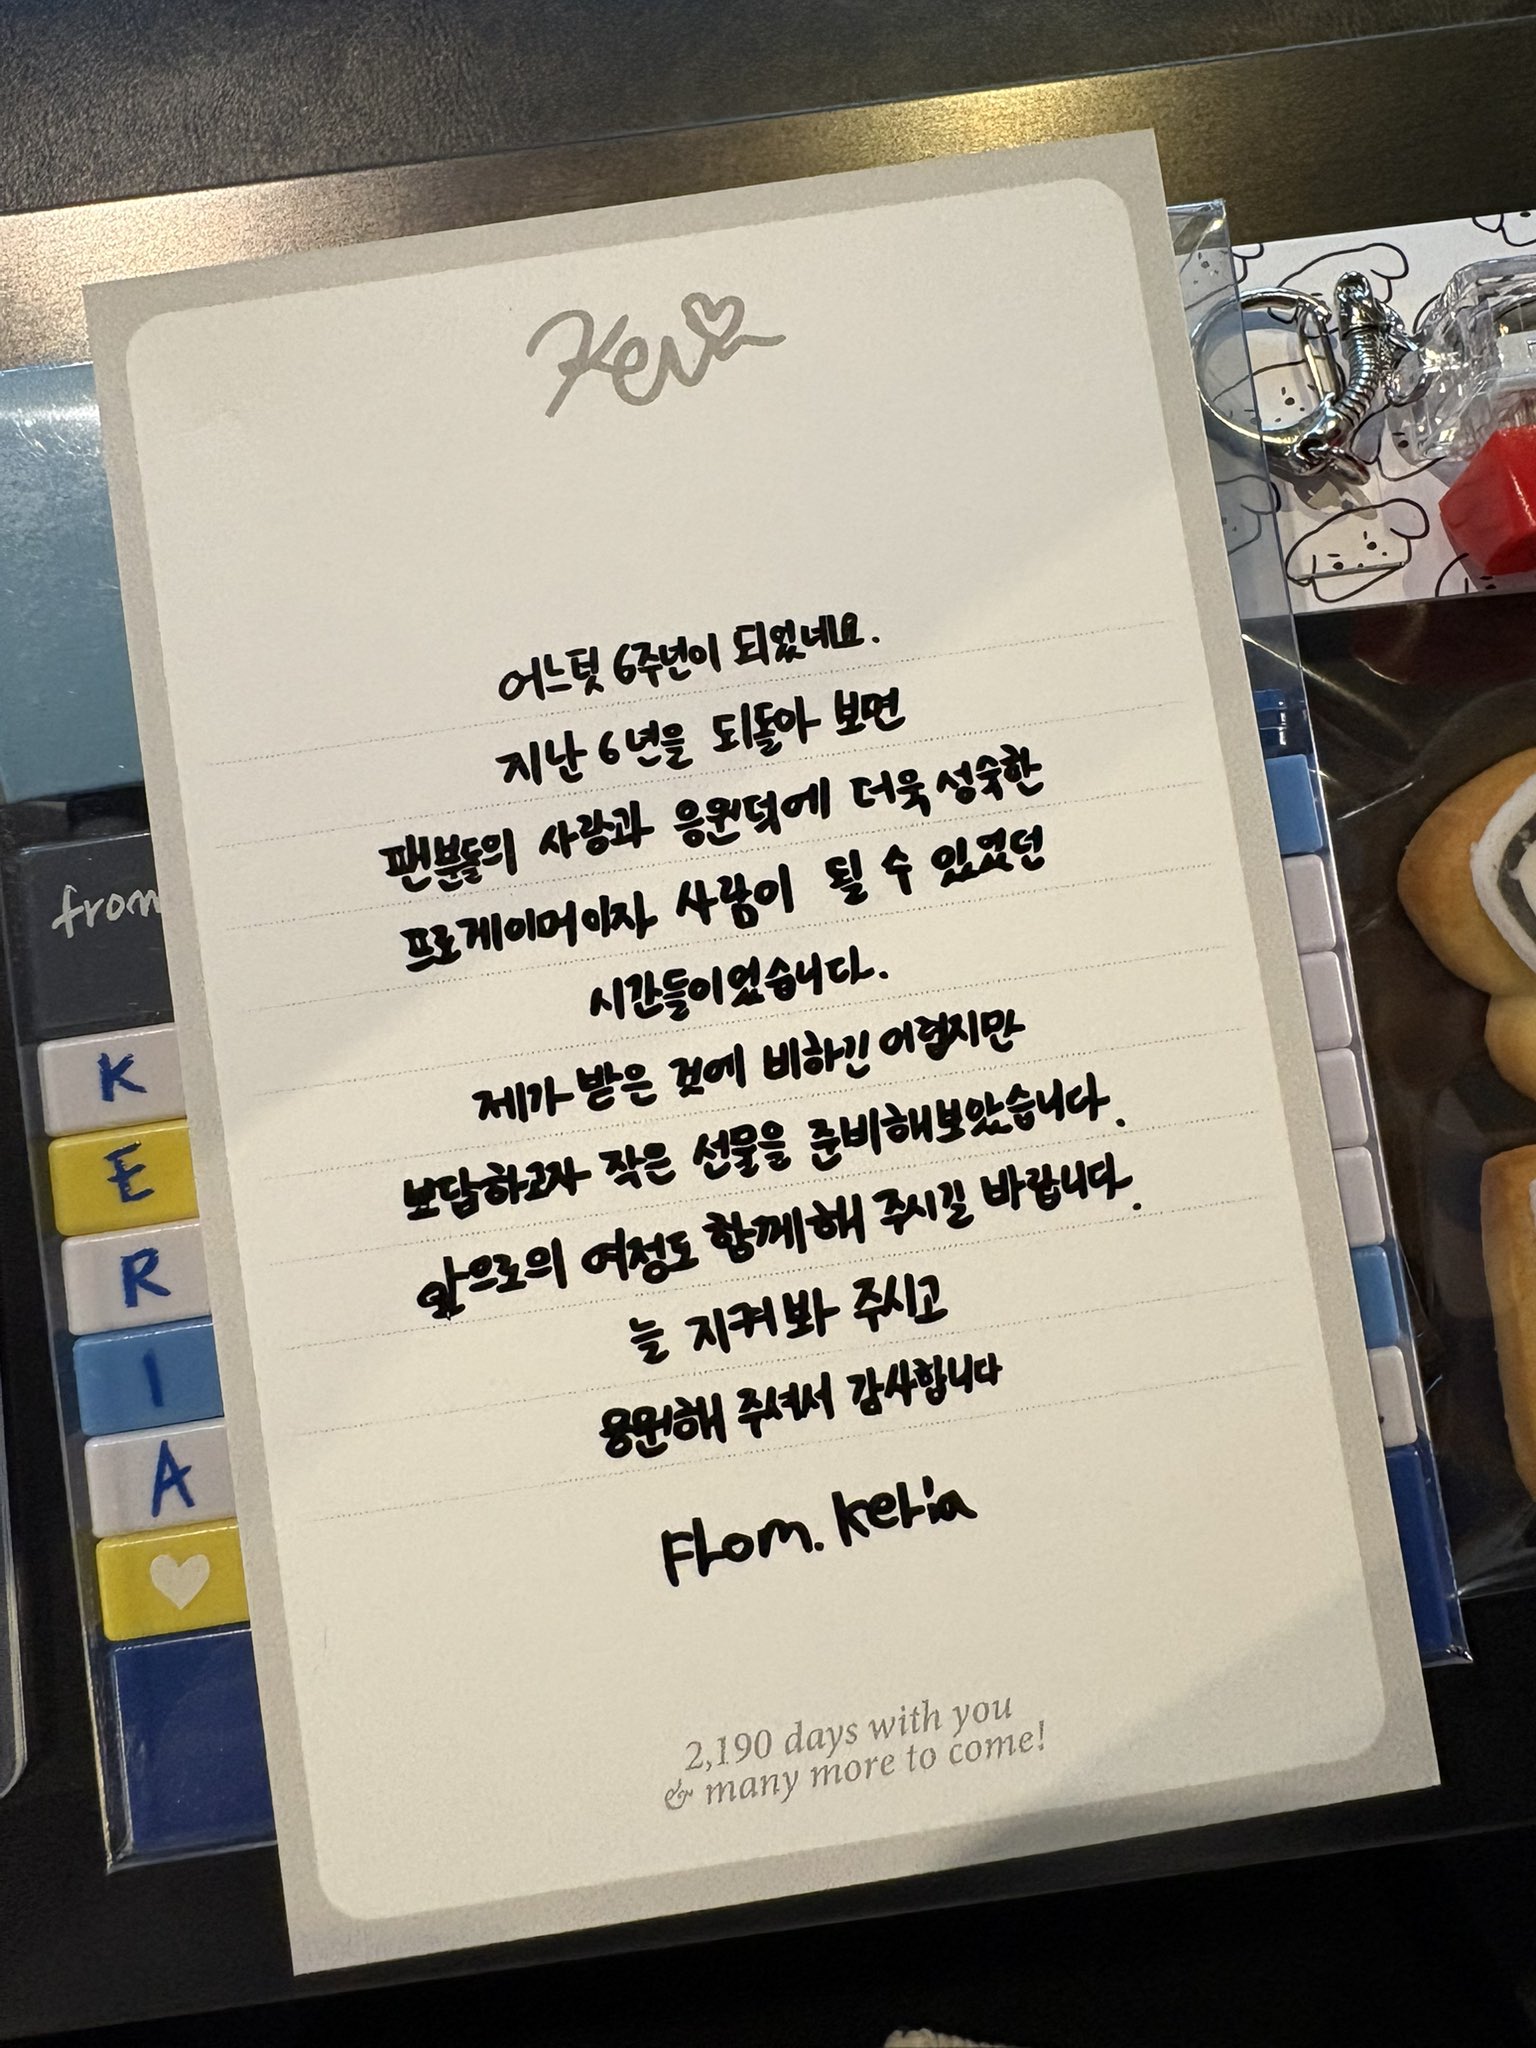 Keria
어느덧 6주년이 되었네요.
지난 6년을 되돌아 보면
팬분들의 사랑과 응원덕에 더욱 성숙한
프로게이머이자 사람이 될 수 있었던
시간들이었습니다.
제가 받은 것에 비하긴 어렵지만
보답하고자 작은 선물을 준비해보았습니다.
앞으로의 여정도 함께해 주시길 바랍니다.
늘 지켜봐 주시고
응원해 주셔서 감사합니다
From. Keria
2,190 days with you
& many more to come!
from
K
E
R
I
A